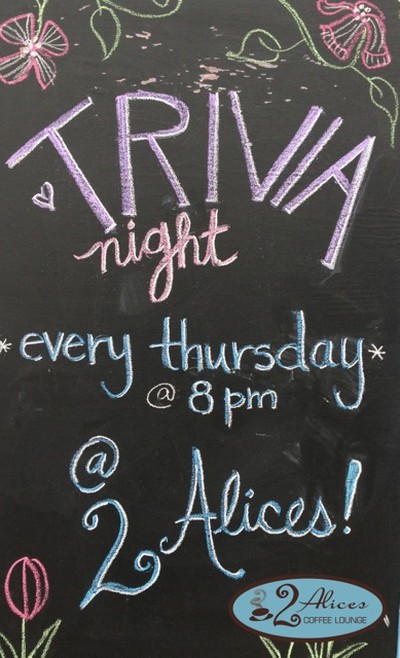 TRIVIA
night
*every thursday*
@ 8pm
@
2 Alices!
2 Alices
COFFEE LOUNGE